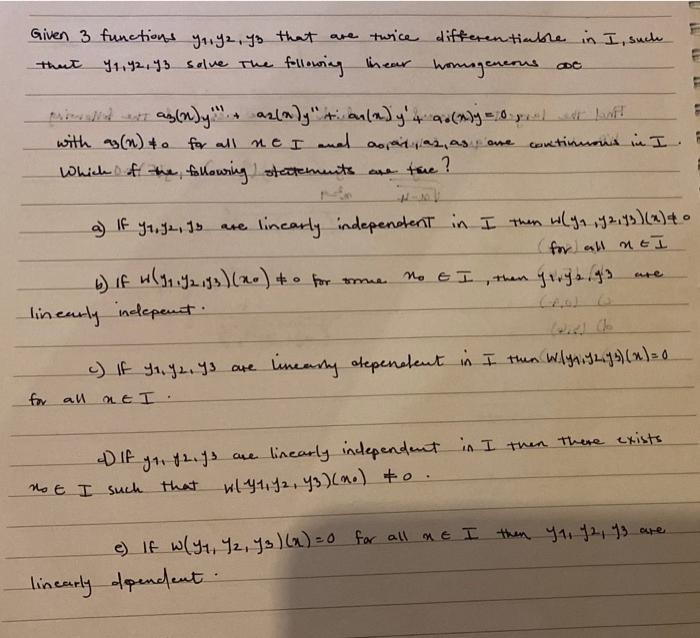 Given 3 functions y₁, y₂, y₃ that are twice differentiable in I, such
that y₁, y₂, y₃ solve The following linear homogeneous ode
a₃(x)y''' + a₂(x)y'' + a₁(x)y' + a₀(x)y = 0,
with a₃(x) ≠ 0 for all x ∈ I and a₀, a₁, a₂, a₃ are continuous in I.
Which of the following statements are true?
a) If y₁, y₂, y₃ are linearly independent in I then W(y₁, y₂, y₃)(x) ≠ 0
for all x ∈ I
b) If W(y₁, y₂, y₃)(x₀) ≠ 0 for some x₀ ∈ I, then y₁, y₂, y₃ are
linearly indepent.
c) If y₁, y₂, y₃ are linearly dependent in I then W(y₁, y₂, y₃)(x) = 0
for all x ∈ I.
d) If y₁, y₂, y₃ are linearly independent in I then there exists
x₀ ∈ I such that W(y₁, y₂, y₃)(x₀) ≠ 0.
e) If W(y₁, y₂, y₃)(x) = 0 for all x ∈ I then y₁, y₂, y₃ are
linearly dpendent.